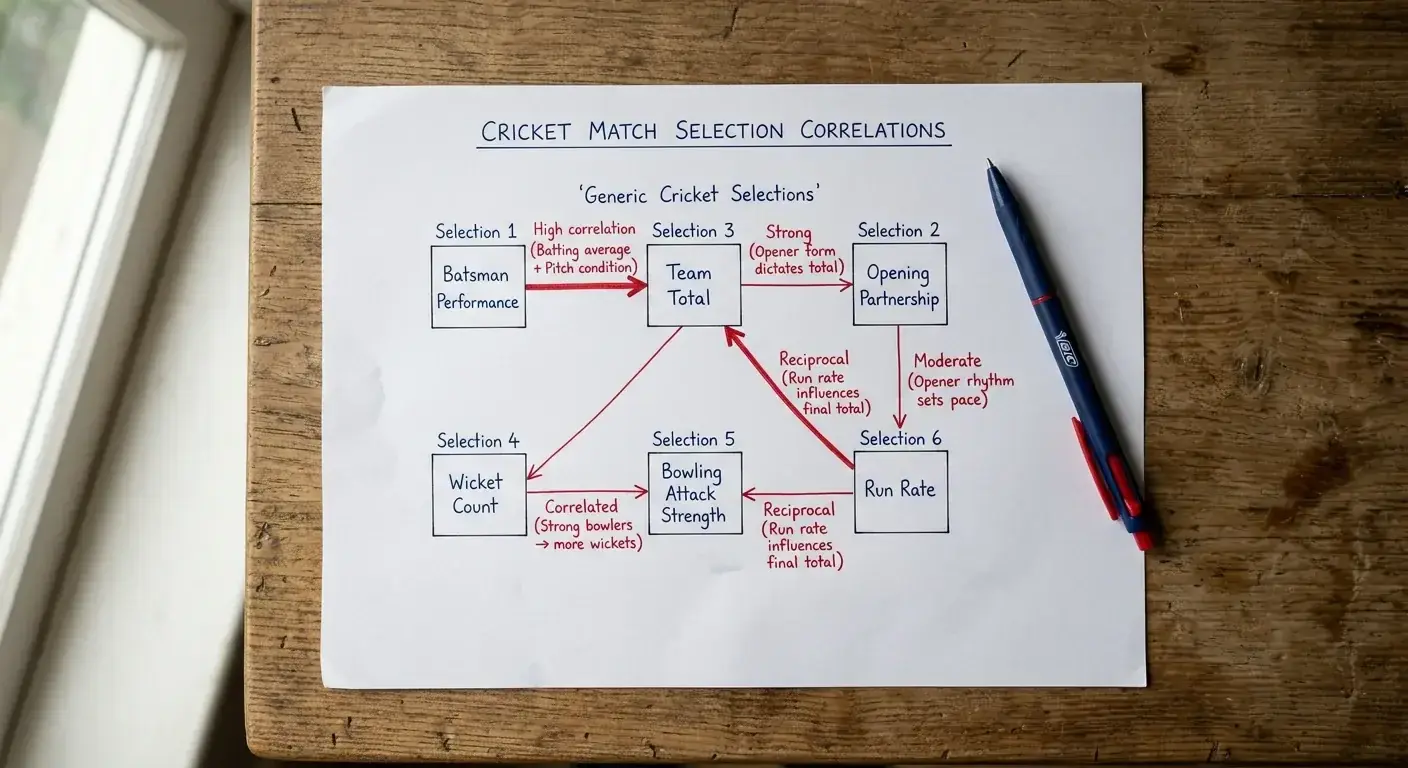 CRICKET MATCH SELECTION CORRELATIONS
'Generic Cricket Selections'
Selection 1
Batsman
Performance
High correlation
(Batting average
+ Pitch condition)
Selection 3
Team
Total
Strong
(Opener form
dictates total)
Selection 2
Opening
Partnership
Reciprocal
(Run rate
influences
final total)
Moderate
(Opener rhythm
sets pace)
Selection 4
Wicket
Count
Correlated
(Strong bowlers
→ more wickets)
Selection 5
Bowling
Attack
Strength
Reciprocal
(Run rate
influences
final total)
Selection 6
Run Rate
BIC